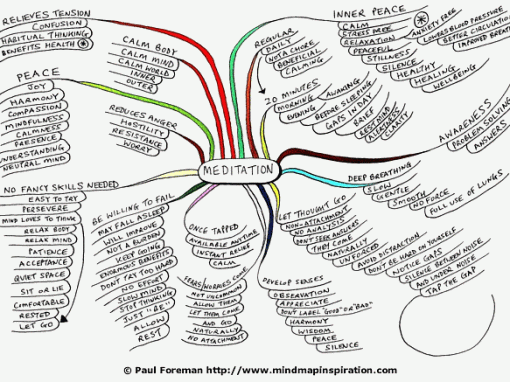 RELIEVES TENSION
CONFUSION
HABITUAL THINKING
BENEFITS HEALTH
PEACE
JOY
HARMONY
COMPASSION
MINDFULNESS
CALMNESS
PRESENCE
UNDERSTANDING
NEUTRAL MIND
NO FANCY SKILLS NEEDED
EASY TO TRY
PERSEVERE
MIND LOVES TO THINK
RELAX BODY
RELAX MIND
PATIENCE
ACCEPTANCE
QUIET SPACE
SIT OR LIE
COMFORTABLE
RESTED
LET GO
CALM BODY
CALM MIND
CALM WORLD
INNER
OUTER
REDUCES ANGER
HOSTILITY
RESISTANCE
WORRY
MEDITATION
BE WILLING TO FAIL
MAY FALL ASLEEP
WILL IMPROVE
NOT A BURDEN
KEEP GOING
ENORMOUS BENEFITS
DON'T TRY TOO HARD
NO EFFORT
SLOW MIND
STOP THINKING
JUST "BE"
ALLOW
REST
ONCE TAPPED
AVAILABLE ANYTIME
INSTANT RELIEF
CALM
WORRIES COME
NOT UNCOMMON
ALLOW THEM
LET THEM COME
AND GO
NATURALLY
NO ATTACHMENT
REGULAR
DAILY
NOT A CHORE
BENEFICIAL
CALMING
20 MINUTES
MORNING
EVENING
AWAKING
BEFORE SLEEPING
GAPS IN DAY
BRIEF
ALERTNESS
CLARITY
INNER PEACE
CALM
STRESS FREE
RELAXATION
PEACEFUL
STILLNESS
SILENCE
HEALTHY
HEALING
WELLBEING
ANXIETY FREE
LOWERS BLOOD PRESSURE
BETTER CIRCULATION
AWARENESS
PROBLEM SOLVING
ANSWERS
DEEP BREATHING
SLOW
GENTLE
SMOOTH
NO FORCE
FULL USE OF LUNGS
LET THOUGHT GO
NON-ATTACHMENT
NO ANALYSIS
DON'T SEEK ANSWERS
THEY COME
NATURALLY
UNFORCED
AVOID DISTRACTION
DON'T BE HARD ON YOURSELF
NOTICE GAPS
SILENCE BETWEEN NOISE
AND UNDER NOISE
TAP THE GAP
DEVELOP SENSES
OBSERVATION
APPRECIATE
DON'T LABEL "GOOD" OR "BAD"
HARMONY
WISDOM
PEACE
SILENCE
© Paul Foreman http://www.mindmapinspiration.com